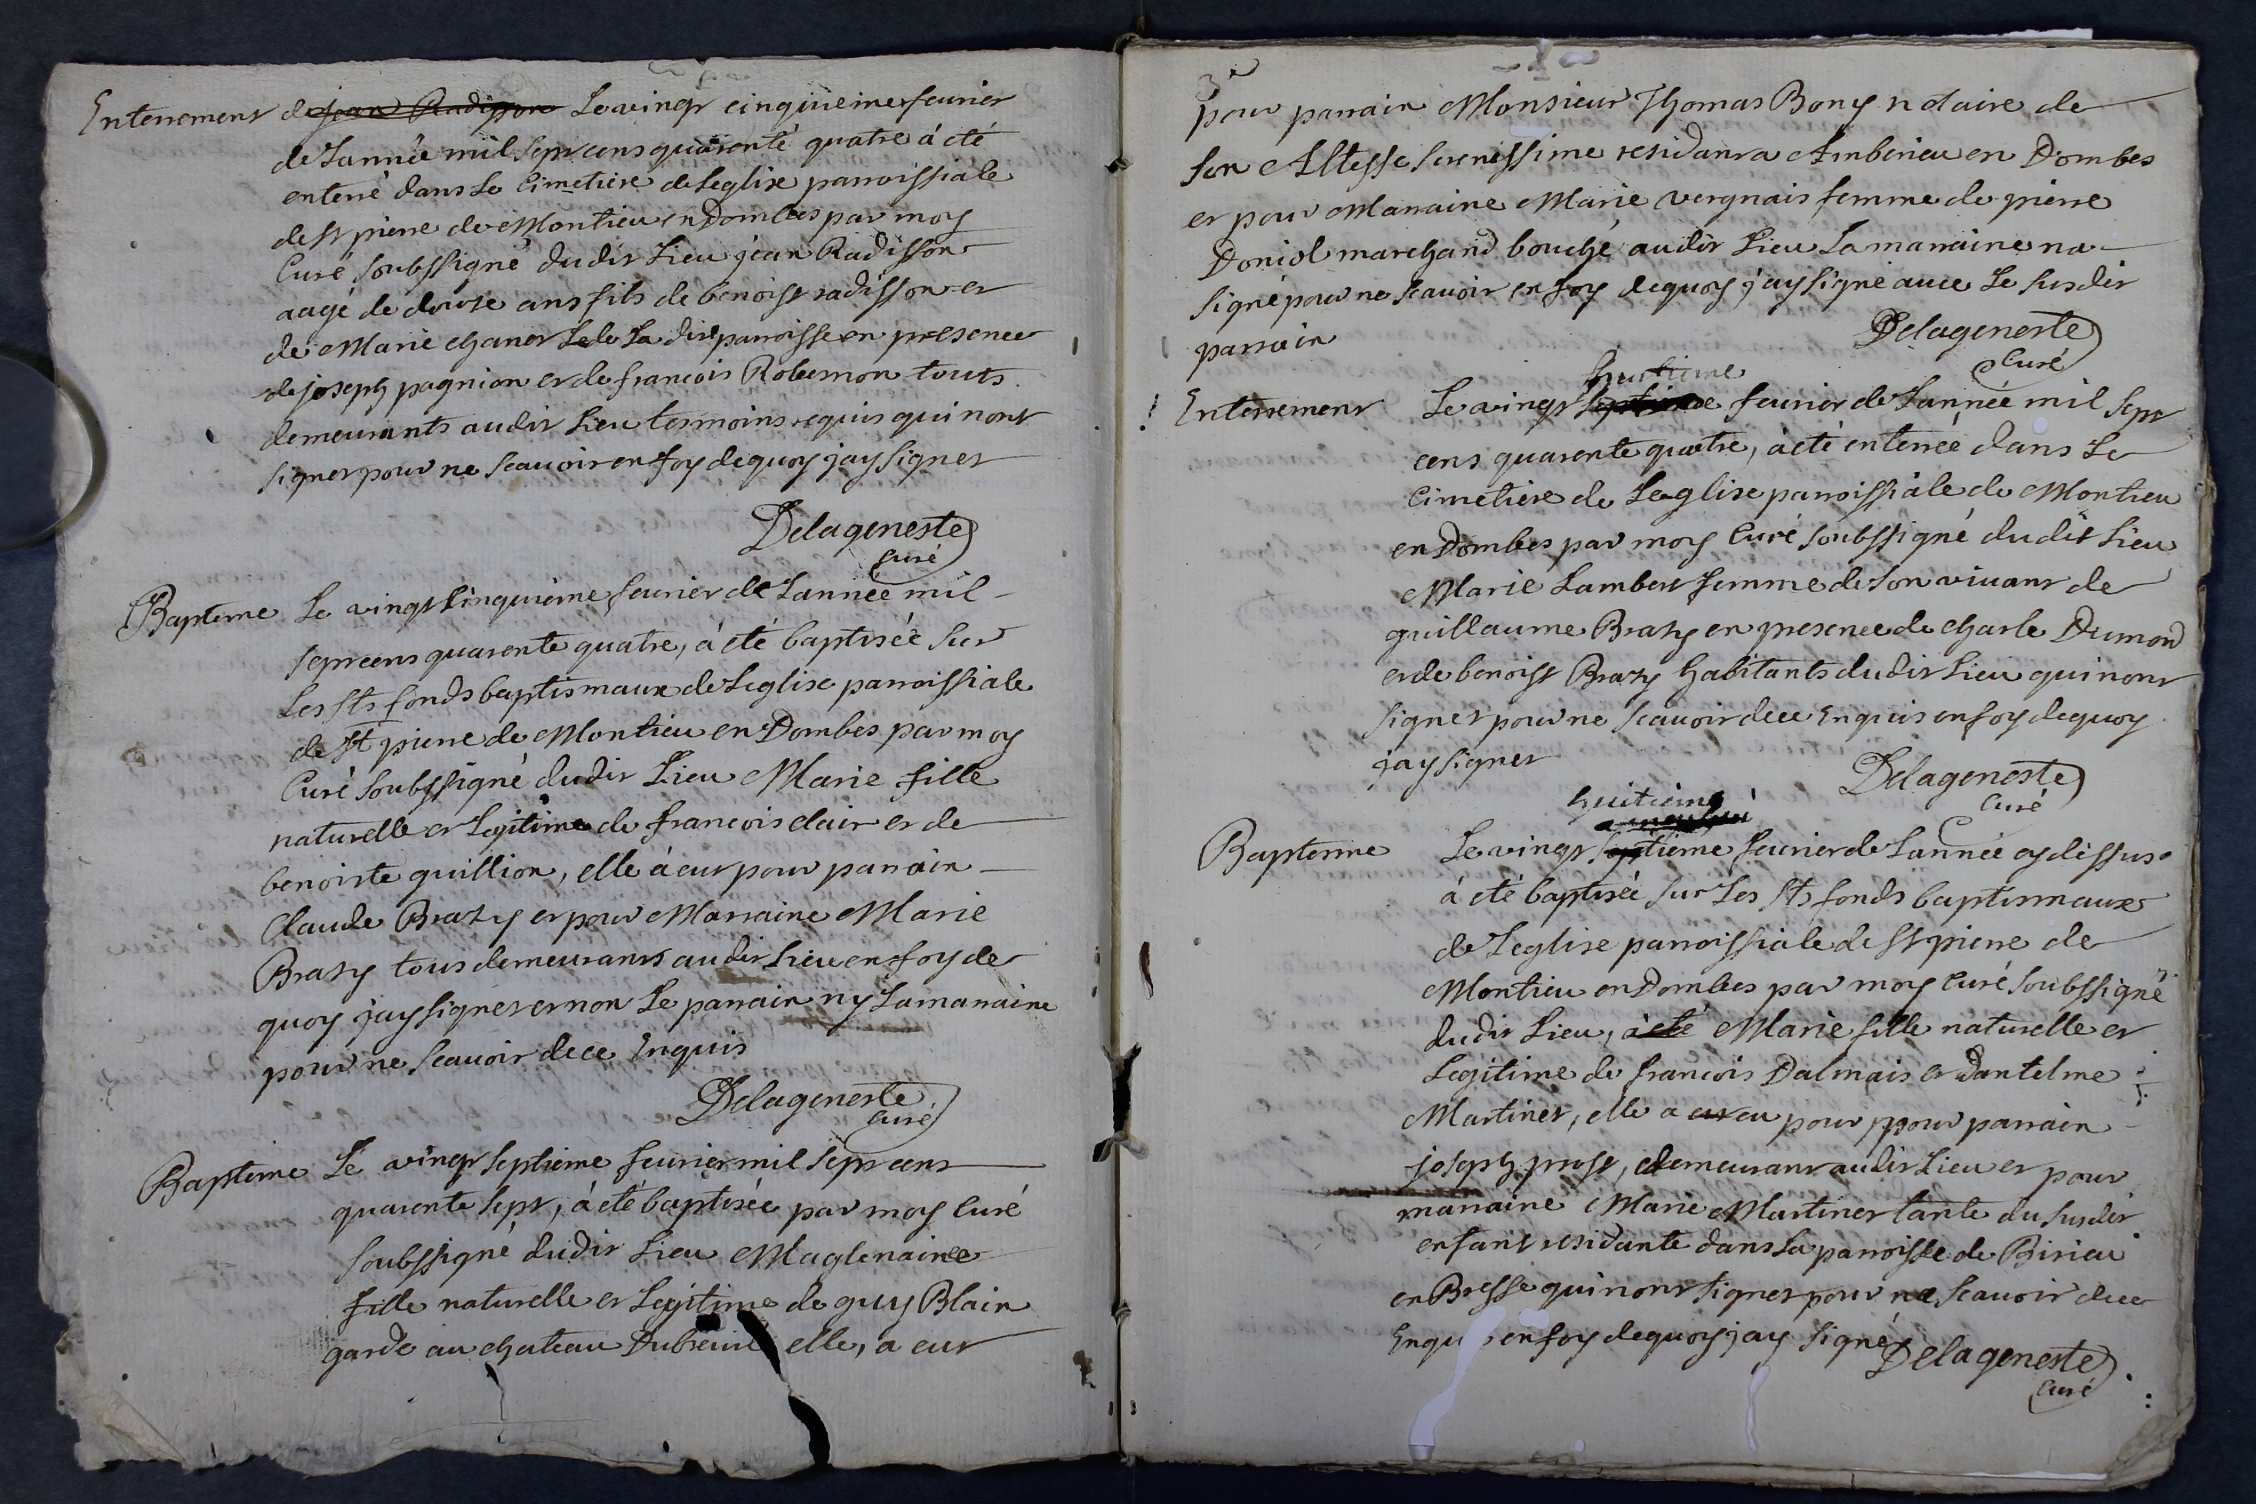 Enterrement de jean Radisson Le vingt cinquieme feurier
de Lannée mil sept cens quarente quatre à eté
enterré dans Le Cimetiere de Leglise parroissiale
de st pierre de Montieu en Dombes par moy
Curé soubssigné dudit Lieu jean Radisson
aagé de douze ans fils de benoist radisson et
de Marie chanet de La dite parroisse en presence
de joseph pagnion et de francois Robernon touts
demeurants audit Lieu tesmoins requis qui nont
signer pour ne scauoir en foy dequoy jay signer
Delageneste
Curé
Bapteme Le vingt Cinquieme feurier de Lannée mil
sept cens quarente quatre, à eté baptisée sur
Les sts fonds baptismaux de Leglise parroissiale
de st pierre de Montieu en Dombes par moy
Curé soubssigné dudit Lieu Marie fille
naturelle et Legitime de francois clair et de
benoiste guillion, elle à eut pour parrain
Claude Brazy et pour Marraine Marie
Brazy tous demeurants audit Lieu en foy de
quoy jay signer et non Le parrain ny La marraine
pour ne scauoir de ce Enquis
Delageneste
Curé
Bapteme Le vingt septieme feurier mil sept cens
quarente sept, à eté baptisée par moy Curé
soubssigné dudit Lieu Maglenaine
fille naturelle et Legitime de guy Blain
garde au chateau Dubreuil elle, a eut
3e
pour parrain Monsieur Thomas Bony notaire de
son Altesse serenissime residant a Amberieu en Dombes
et pour Marraine Marie vergnais femme de pierre
Doniol marchand bouché audit Lieu La marraine na
signé pour ne scauoir en foy dequoy j'ay signé auec Le susdit
parrain
Delageneste
Curé
huitieme
Enterrement Le vingt septieme feurier de Lannée mil sept
cens quarente quatre, à eté enterrée dans Le
Cimetiere de Leglise parroissiale de Montieu
en Dombes par moy Curé soubssigné dudit Lieu
Marie Lambert femme de son viuant de
guillaume Brazy en presence de charle Dumond
et de benoist Brazy habitants dudit Lieu qui nont
signer pour ne scauoir de ce Enquis en foy dequoy
jay signer
Delageneste
Curé
huitieme
Bapteme Le vingt septieme feurier de Lannée cy dessus
à eté baptisée sur Les sts fonds baptismaux
de Leglise parroissiale de st pierre de
Montieu en Dombes par moy Curé soubssigné
dudit Lieu, à eté Marie fille naturelle et
Legitime de francois Dalmais et Dantelme
Martinet, elle a eut eu pour pour parrain
joseph prost, demeurant audit Lieu et pour
marraine Marie Martinet tante du susdit
enfant residante dans La parroisse de Birieu
en Bresse qui nont signer pour ne scauoir de ce
Enquis en foy dequoy jay signé
Delageneste
Curé